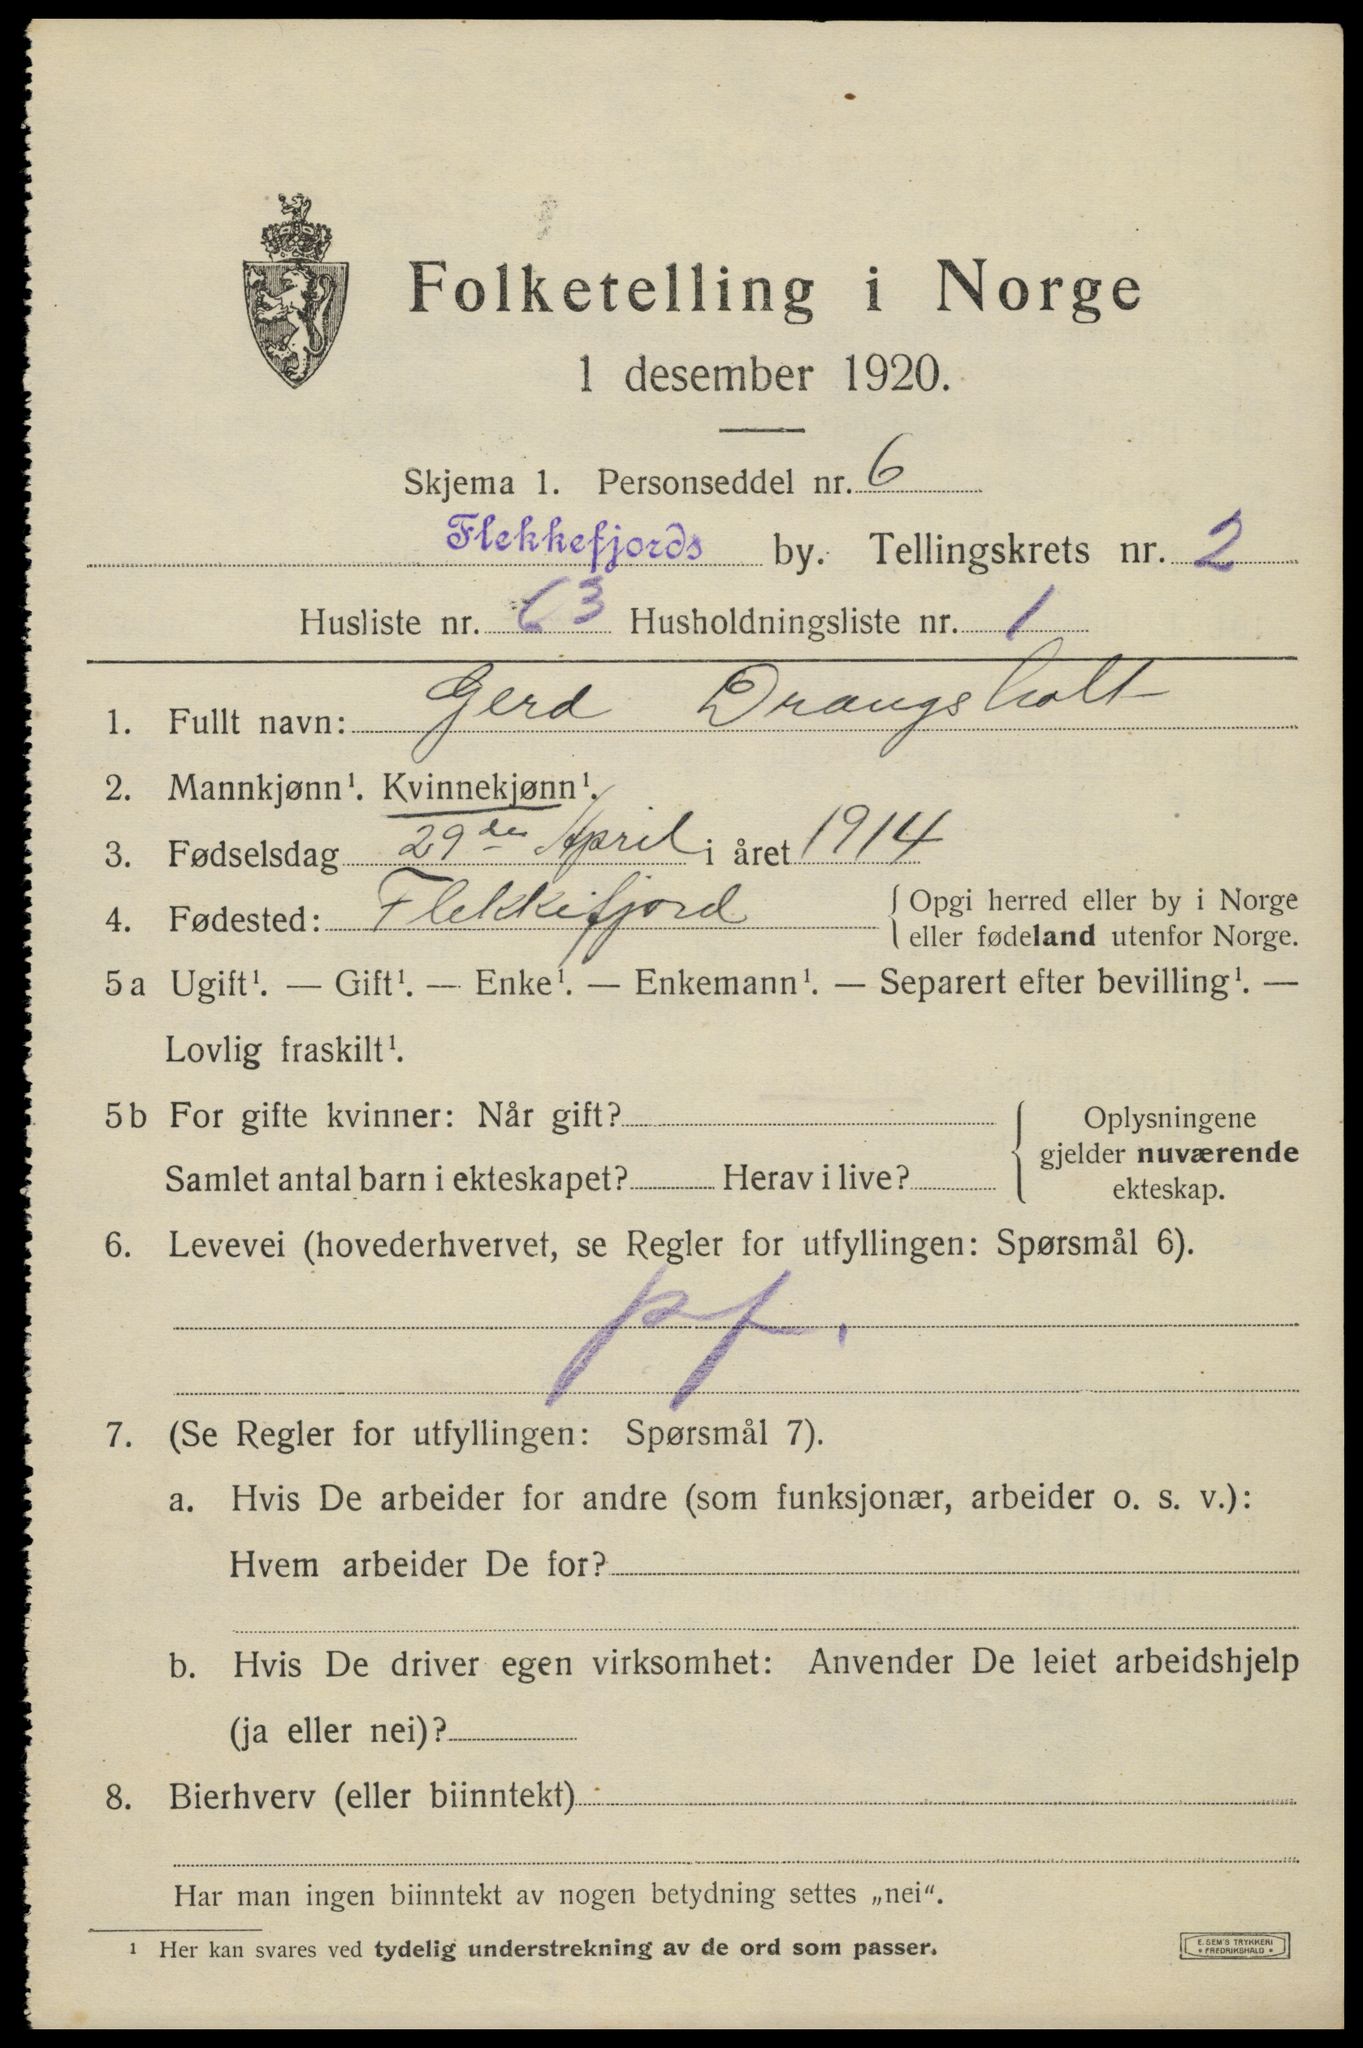 Folketelling i Norge
1 desember 1920.
Skjema 1. Personseddel nr. 6
Flekkefjords by. Tellingskrets nr. 2
Husliste nr. 63 Husholdningsliste nr. 1
1. Fullt navn: Gerd Drangsholt
2. Mannkjønn¹. Kvinnekjønn¹.
3. Fødselsdag 29de April i året 1914
4. Fødested: Flekkefjord { Opgi herred eller by i Norge
eller fødeland utenfor Norge.
5a Ugift¹. — Gift¹. — Enke¹. — Enkemann¹. — Separert efter bevilling¹. —
Lovlig fraskilt¹.
5b For gifte kvinner: Når gift?
Samlet antal barn i ekteskapet? Herav i live?
{ Oplysningene
gjelder nuværende
ekteskap.
6. Levevei (hovederhvervet, se Regler for utfyllingen: Spørsmål 6).
pf.
7. (Se Regler for utfyllingen: Spørsmål 7).
a. Hvis De arbeider for andre (som funksjonær, arbeider o. s. v.):
Hvem arbeider De for?
b. Hvis De driver egen virksomhet: Anvender De leiet arbeidshjelp
(ja eller nei)?
8. Bierhverv (eller biinntekt)
Har man ingen biinntekt av nogen betydning settes „nei“.
¹ Her kan svares ved tydelig understrekning av de ord som passer.
E. SEM'S TRYKKERI
• FREDRIKSHALD •